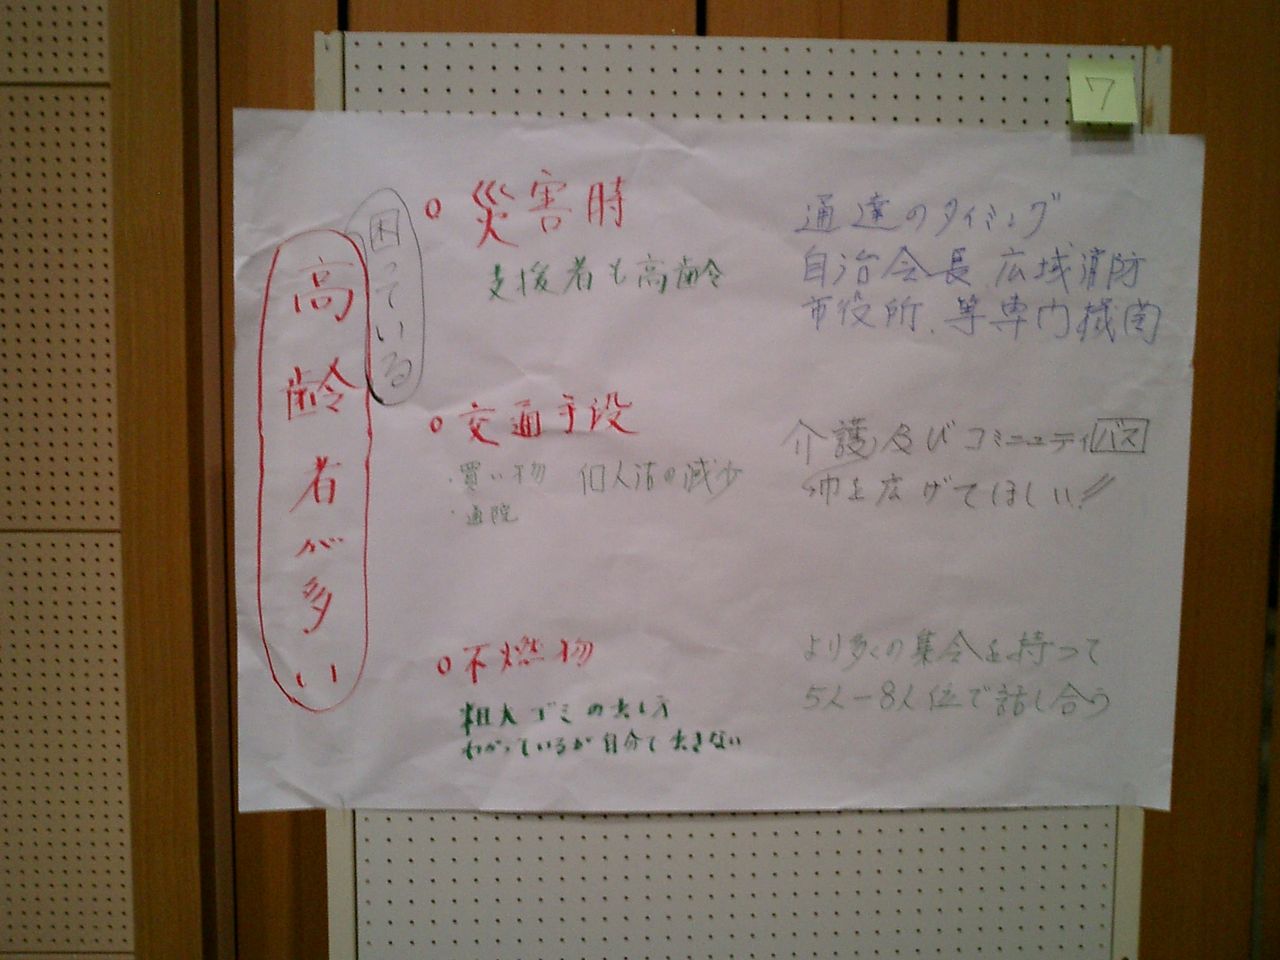 7
困っている
高齢者が多い
○災害時
支援者も高齢
通達のタイミング
自治会長、広域消防
市役所、等専門機関
○交通手段
・買い物 個人店の減少
・通院
介護及びコミュニティバス
巾を広げてほしい!!
○不燃物
粗大ゴミの出し方
わかっているが自分で出きない
より多くの集会を持って
5人-8人位で話し合う